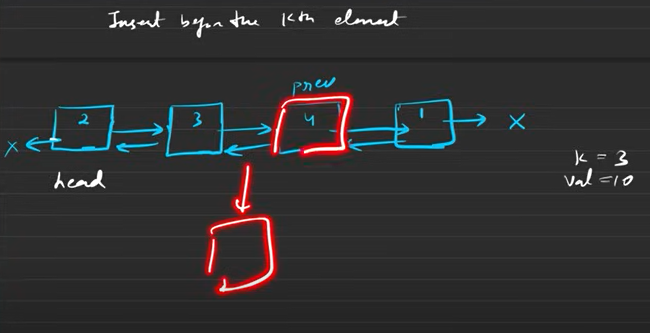 Insert before the Kth element
prev
2 3 4 1
X X
head
K = 3
val = 10